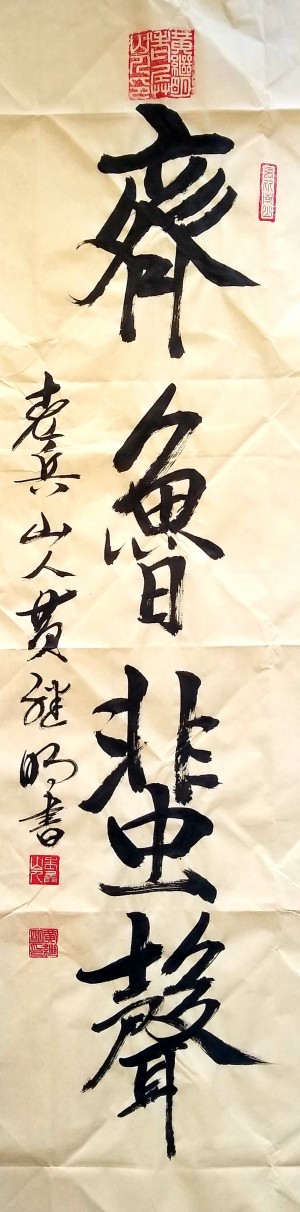 齊魯蜚聲
老兵山人黄继明書